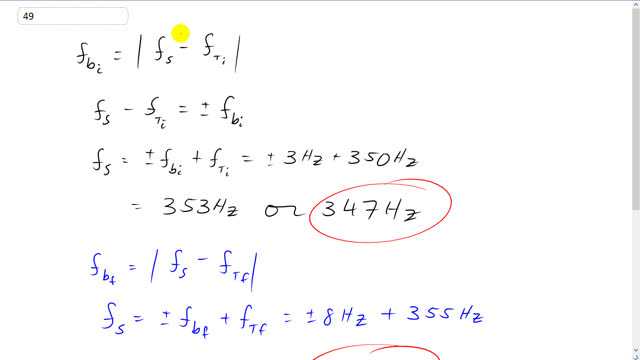 49
f_bi = | f_s - f_Ti |
f_s - f_Ti = ± f_bi
f_s = ± f_bi + f_Ti = ± 3 Hz + 350 Hz
= 353 Hz or 347 Hz
f_bf = | f_s - f_Tf |
f_s = ± f_bf + f_Tf = ± 8 Hz + 355 Hz